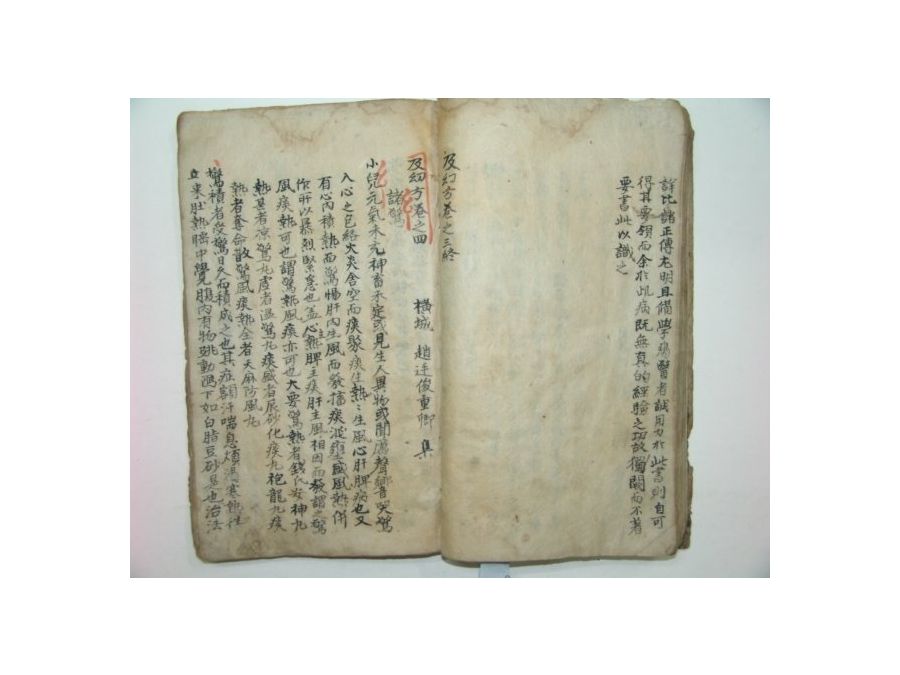 詳比諸正傳尤明且備學瘍醫者誠用力於此書則自可
得其要領而余於此病既無真的經驗之功故獨闕而不著
要書此以識之
及幼方卷之三終
及幼方卷之四
橫城 趙廷俊重卿 集
諸驚
小兒元氣未充神畜未定或見生人異物或聞厲聲響音哭驚
入心之包絡火炎舍空而痰聚痰生熱〻生風心肝脾病也又
有心內積熱而驚惕肝內生風而發搐痰涎壅盛風熱併
作所以暴烈緊急也盖心主熱脾主痰肝主風相因而發謂之驚
風痰熱可也謂驚熱風痰亦可也大要驚熱者錢氏安神丸
熱甚者凉驚丸虛者溫驚丸痰盛者辰砂化痰丸抱龍丸痰
熱者奪命散驚風痰熱全者天麻防風丸
驚積者受驚日久而積成之也其症額汗喘息煩渴寒熱往
來肚熱睡中覺腹內有物跳動瀉下如白脂豆砂是也治法